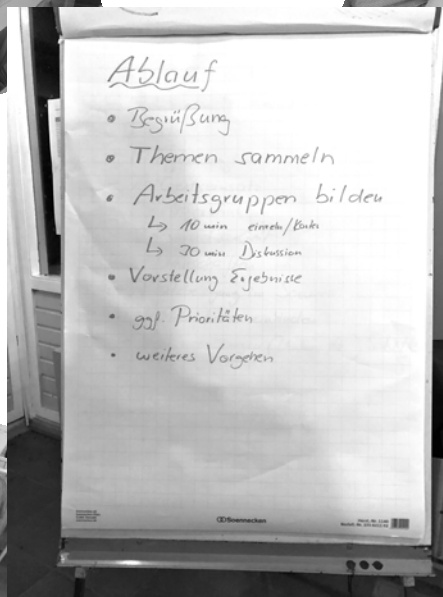 Ablauf
• Begrüßung
• Themen sammeln
• Arbeitsgruppen bilden
↳ 10 min einzeln/Karten
↳ 30 min Diskussion
• Vorstellung Ergebnisse
• ggf. Prioritäten
• weiteres Vorgehen
Soennecken